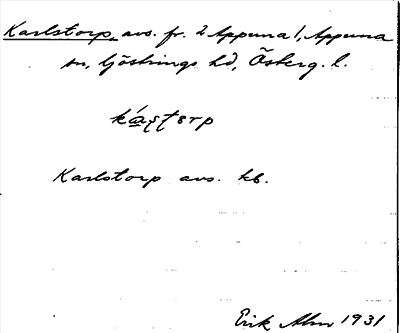 Karlstorp, avs. fr. 2 Appuna 1, Appuna
sn, Göstrings hd, Österg. l.
ká̱ʂʈɘrp
Karlstorp avs. kb.
Erik Alm 1931